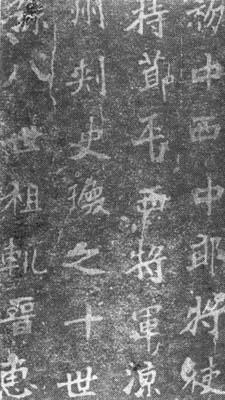 初中西中郎將使
持節平西將軍涼
州刺史瑍之十世
孫八世祖軌晉惠